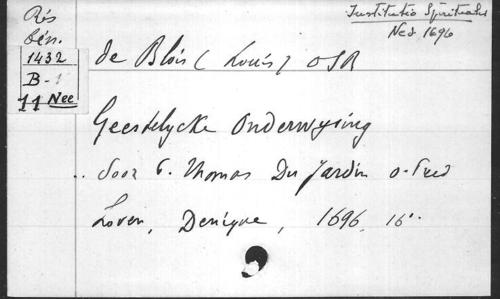 Rés
bén.
1432
B-1
11 Nee
Institutio Spiritualis
Ned 1696
de Blois (Louis) OSB
Geestelycke Onderwysing
door
Thomas Du Jardin o. Pred
Loven, Denique, 1696, 16°.